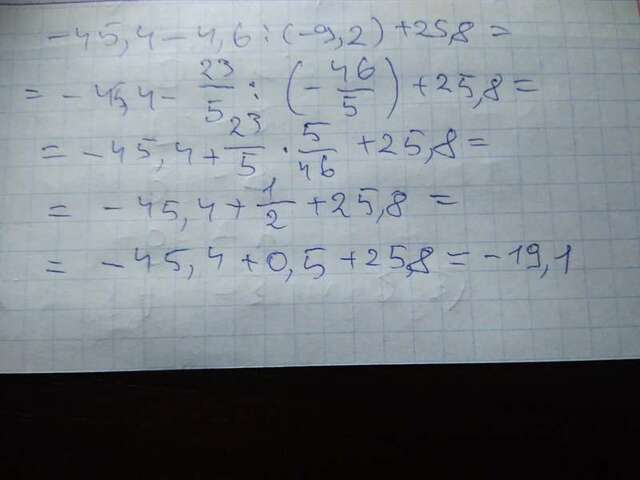 -45,4-4,6:(-9,2)+25,8=
=-45,4-23/5:(-46/5)+25,8=
=-45,4+23/5·5/46+25,8=
=-45,4+1/2+25,8=
=-45,4+0,5+25,8=-19,1